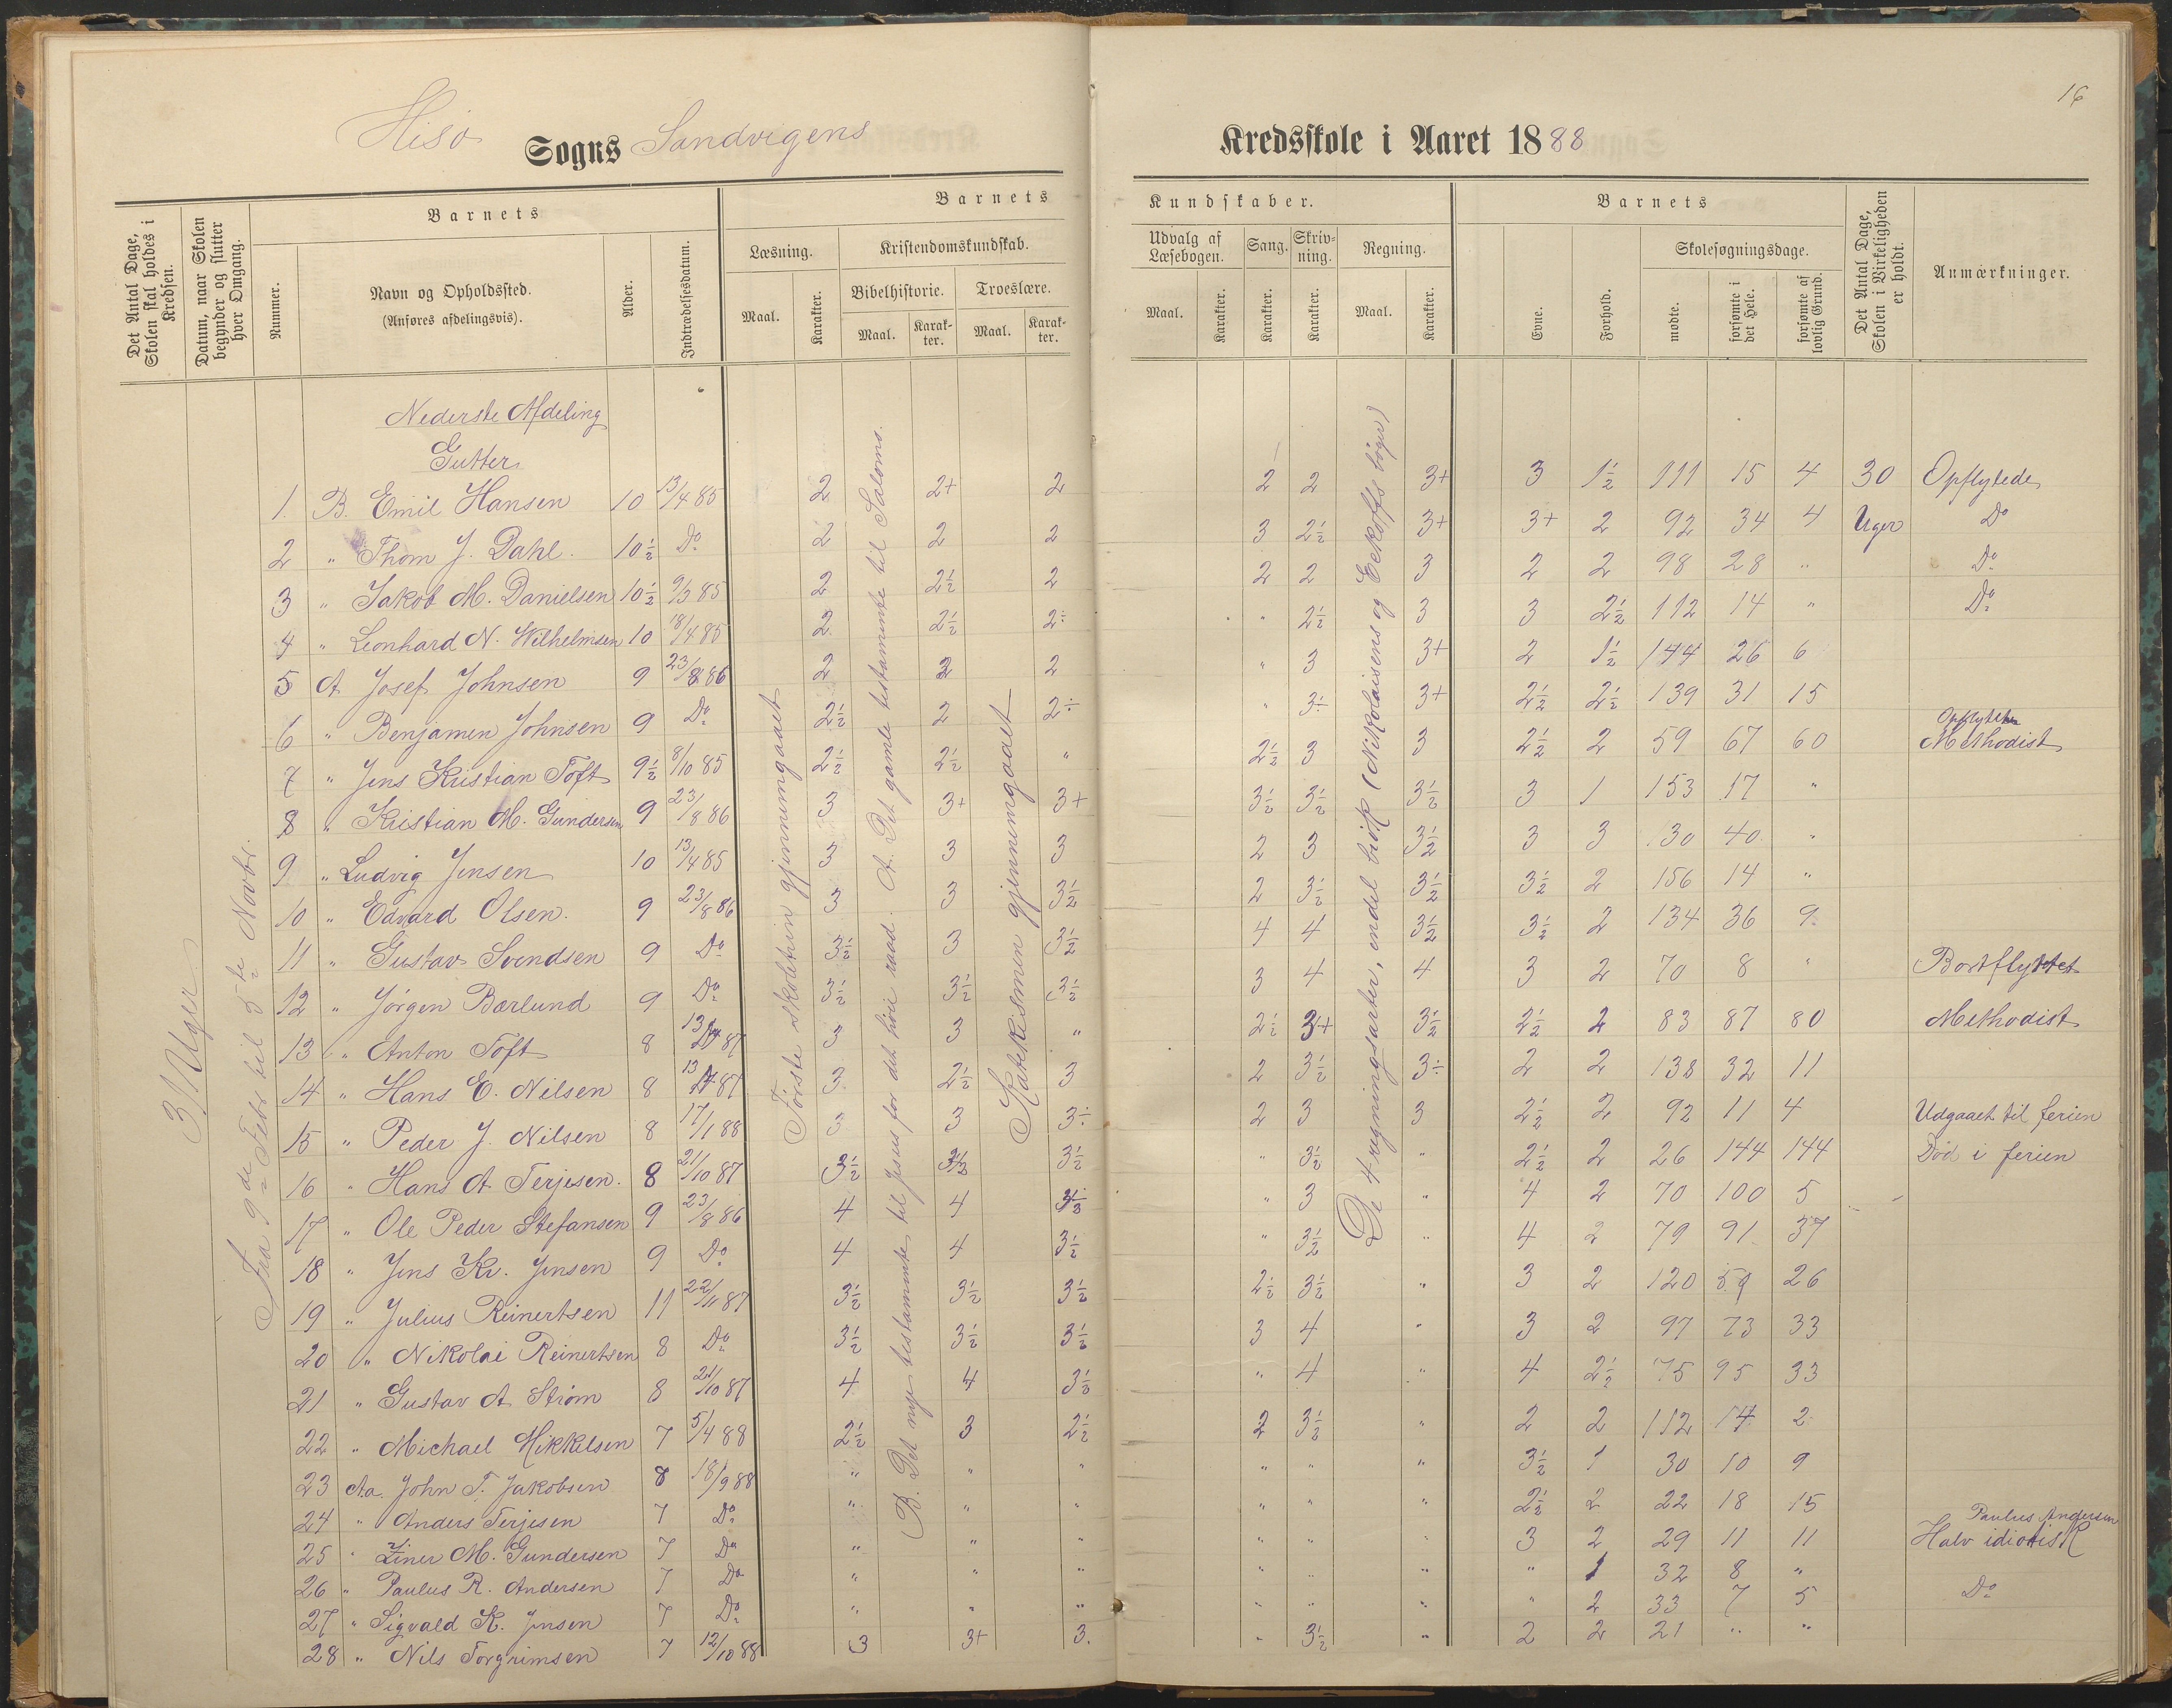 16
Hisø Sogns Sandvigens Kredsskole i Aaret 1888
Det Antal Dage, Skolen skal holdes i Kredsen.
Datum, naar Skolen begynder og slutter hver Omgang.
Barnets
Nummer.
Navn og Opholdssted.
(Anføres afdelingsvis).
Alder.
Indtrædelsesdatum.
Barnets Kundskaber.
Læsning.
Maal.
Karakter.
Kristendomskundskab.
Bibelhistorie.
Maal.
Karak-ter.
Troeslære.
Maal.
Karak-ter.
Udvalg af Læsebogen.
Maal.
Karakter.
Sang.
Karakter.
Skriv-ning.
Karakter.
Regning.
Maal.
Karakter.
Barnets
Evne.
Forhold.
Skolesøgningsdage.
mødte.
forsømte i det Hele.
forsømte af lovlig Grund.
Det Antal Dage, Skolen i Virkeligheden er holdt.
Anmærkninger.
31 Uger
Fra 9de Febr til 5te Novbr.
Første skoletrin gjennemgaaet
A. Det gamle testamente til Salomo.
B. Det nye testamente, til Jesus for det høie raad.
Katekismen gjennemgaaet
De 4 regningsarter, endel brøk (Nikolaisens og Eekoffs bøger)
Nederste Afdeling
Gutter
1. B. Emil Hansen 10 13/4 85 2 2+ 2 2 2 3+ 3 1½ 111 15 4 30 Opflytede
2 " Thom J. Dahl. 10½ Do 2 2 2 3 2½ 3+ 3+ 2 92 34 4 Uger Do
3 " Jakob M. Danielsen 10½ 9/3 85 2 2½ 2 2 2 3 2 2 98 28 " Do
4 " Leonhard N. Wilhelmsen 10 18/4 85 2 2½ 2÷ " 2½ 3 3 2½ 112 14 " Do
5 A Josef Johnsen 9 23/8 86 2 2 2 " 3 3+ 2 1½ 144 26 6
6 " Benjamen Johnsen 9 Do 2½ 2 2÷ " 3÷ 3+ 2½ 2½ 139 31 15
7 " Jens Kristian Toft 9½ 8/10 85 2½ 2½ " 2½ 3 3 2½ 2 59 67 60 Opflyttes Methodist
8 " Kristian M. Gundersen 9 23/8 86 3 3+ 3+ 3½ 3½ 3½ 3 1 153 17 "
9 " Ludvig Jensen 10 13/4 85 3 3 3 2 3 3½ 3 3 130 40 "
10 " Edvard Olsen. 9 23/8 86 3 3 3½ 2 3½ 3½ 3½ 2 156 14 "
11 " Gustav Svendsen 9 Do 3½ 3 3½ 4 4 3½ 3½ 2 134 36 9
12 " Jørgen Bærlund 9 Do 3½ 3½ 3½ 3 4 4 3 2 70 8 " Bortflyttet
13 " Anton Toft 8 13/4 87 3 3 " 2½ 3+ 3½ 2½ 2 83 87 80 Methodist
14 " Hans E. Nilsen 8 13/4 87 3 2½ 3 2 3½ 3÷ 2 2 138 32 11
15 " Peder J. Nilsen 8 17/1 88 3 3 3÷ 2 3 3 2½ 2 92 11 4 Udgaaet til ferien
16 " Hans A Terjesen. 8 21/10 87 3½ 3½ 3½ " 3½ " 2½ 2 26 144 144 Død i ferien
17 " Ole Peder Stefansen 9 23/8 86 4 4 " 3 " 4 2 70 100 5
18 " Jens Kr. Jensen 9 Do 4 4 3½ " 3½ " 4 2 79 91 37
19 " Julius Reinertsen 11 22/11 87 3½ 3½ 3½ 2½ 3½ " 3 2 120 59 26
20 " Nikolai Reinertsen 8 Do 3½ 3½ 3½ 3 4 " 3 2 97 73 33
21 " Gustav A Strøm 8 21/10 87 4 4 3½ " 4 " 4 2½ 75 95 33
22 " Michael Mikkelsen 7 5/4 88 2½ 3 2½ 2 3½ " 2 2 112 14 2
23 Aa. John T. Jakobsen 8 18/9 88 " " " " " " 3½ 1 30 10 9
24 " Anders Terjesen 7 Do " " " " " " 2½ 2 22 18 15
25 " Einer M. Gundersen 7 Do " " " " " " 3 2 29 11 11 Paulus Andersen Halv idiotisk
26 " Paulus R. Andersen 7 Do " " " " " " " 1 32 8 "
27 " Sigvald K. Jensen 7 Do " " " " " " " 2 33 7 5 Do
28 " Nils Torgrimsen 7 12/10 88 3 3+ 3. " 3½ " 2 2 21 " "